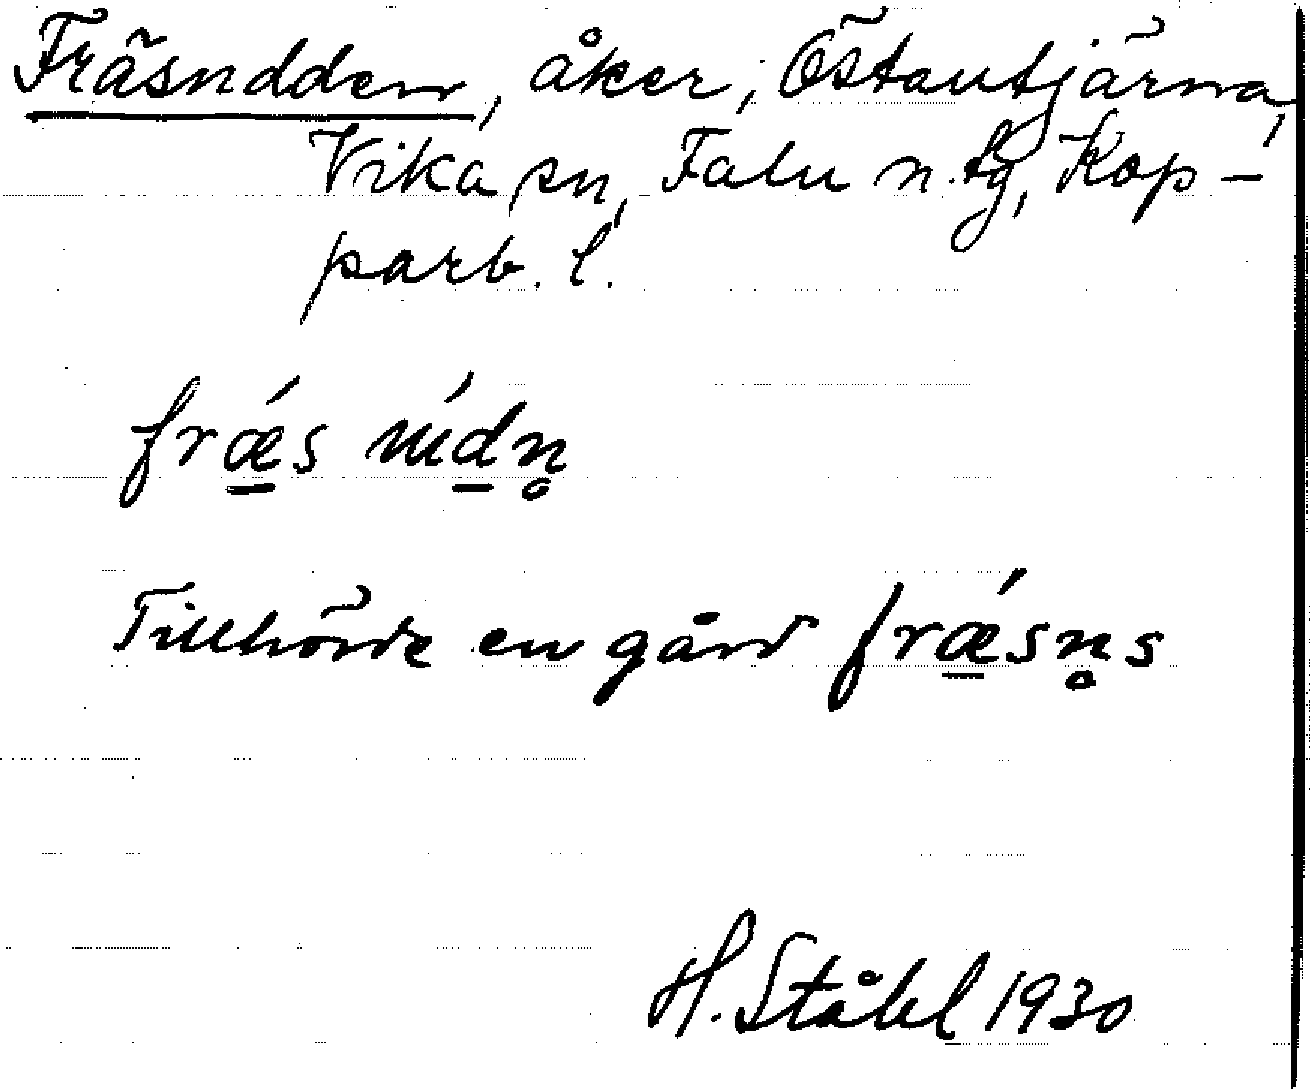 Fräsndden, åker, Östantjärna,
Vika sn, Falu n. tg, Kop-
parb. l.
frǽs nídn̥
Tillhörde en gård frǽsn̥s
H. Ståhl 1930